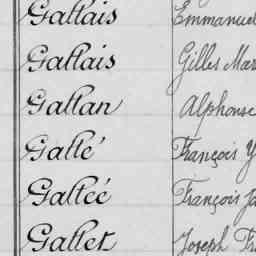 Gallais Emmanuel
Gallais Gilles Mar
Gallan Alphonse
Gallé François Y
Gallée François Ja
Galler Joseph Fr